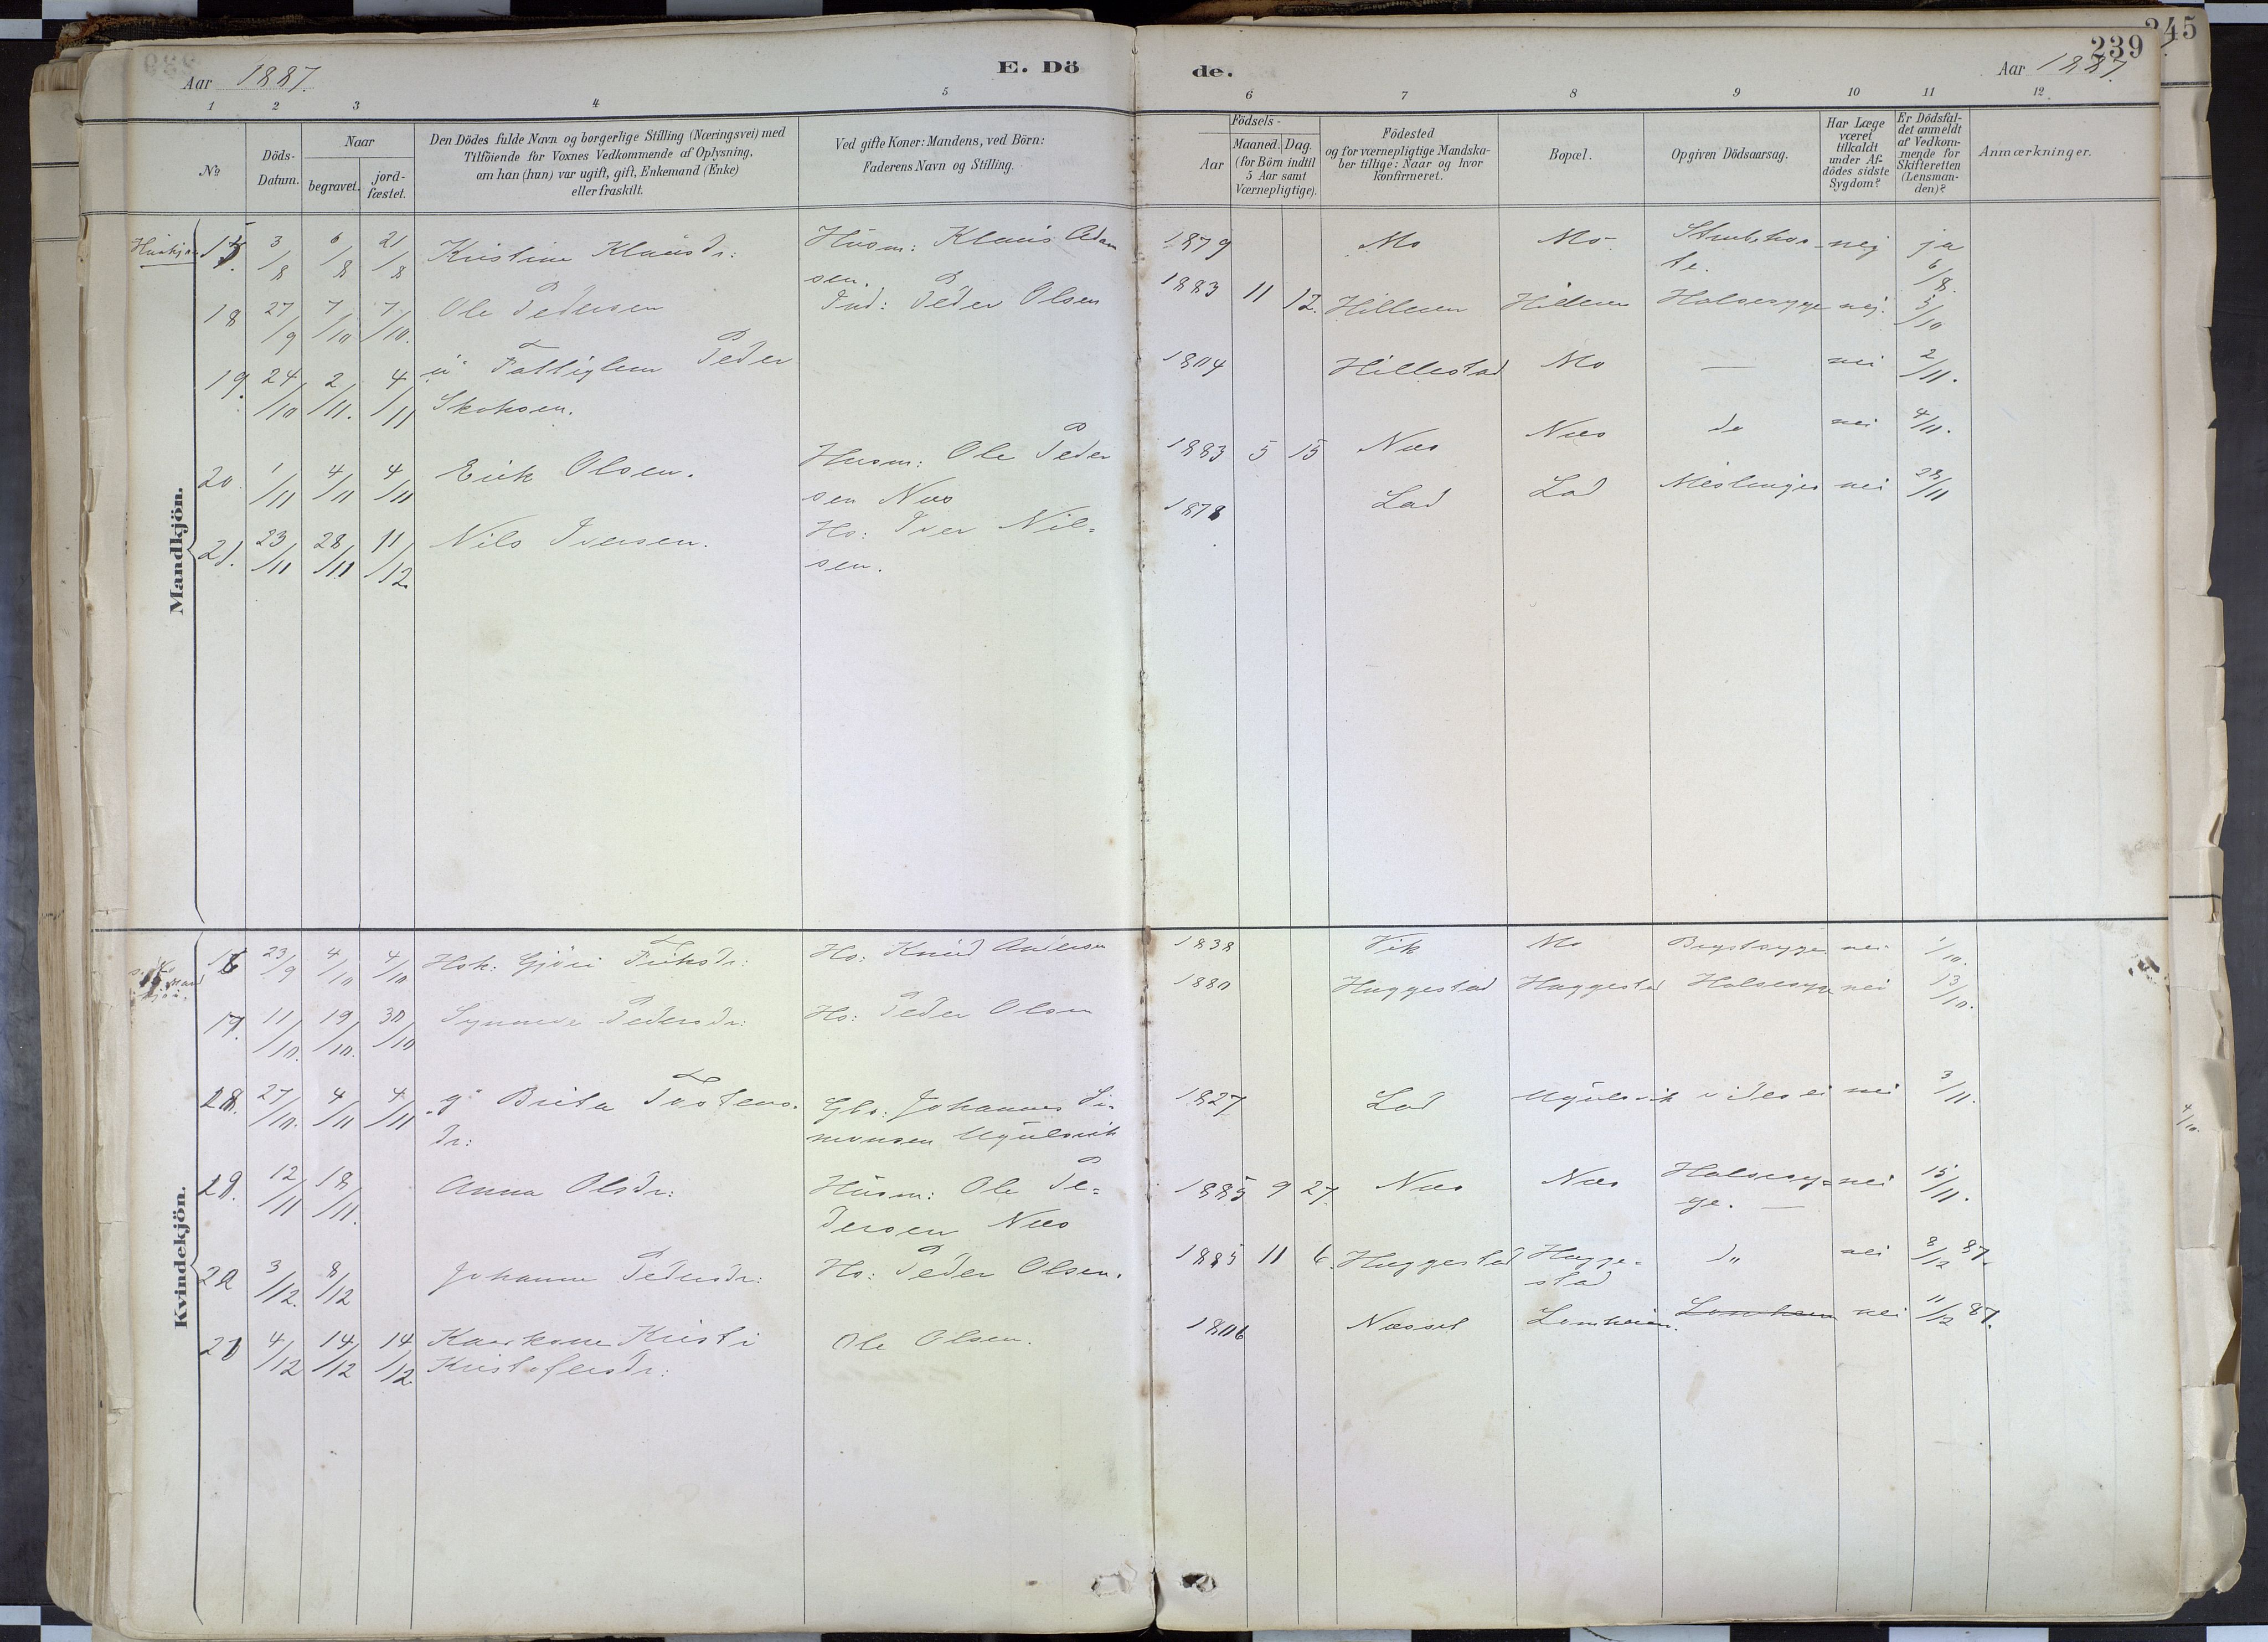 245
239
Aar 1887. E. Dö de. Aar 1887.
1 2 3 4 5 6 7 8 9 10 11 12
No.
Döds-
Datum.
Naar
begravet.
jord-
fæstet.
Den Dödes fulde Navn og borgerlige Stilling (Næringsvei) med
Tilföiende for Voxnes Vedkommende af Oplysning,
om han (hun) var ugift, gift, Enkemand (Enke)
eller fraskilt.
Ved gifte Koner: Mandens, ved Börn:
Faderens Navn og Stilling.
Födsels-
Aar
Maaned. Dag.
(for Börn indtil
5 Aar samt
Værnepligtige).
Födested
og for værnepligtige Mandska-
ber tillige: Naar og hvor
konfirmeret.
Bopæl.
Opgiven Dödsaarsag.
Har Læge
været
tilkaldt
under Af-
dödes sidste
Sygdom?
Er Dödsfal-
det anmeldt
af Vedkom-
mende for
Skifteretten
(Lensman-
den)?
Anmærkninger.
Mandkjön.
3/8 6/8 21/8 Kristine Klausdr: Husm: Klaus Adam
sen. 1879 Mo Mo nei ja
6/8.
18 27/9 7/10 7/10. Ole Pedersen Ind: Peder Olsen 1883 11 12. Hilleren Hilleren Halssyge nei. 5/10
19. 24/10 2/11. 4/11 u Fattiglem Peder 1804 Hillestad Mo — nei 2/11.
20. 1/11 4/11 4/11 Erik Olsen. Husm: Ole Peder
sen Næs 1883 5 15 Næs Næs do nei 4/11.
21. 23/11 28/11 11/12. Nils Iversen. Hs: Iver Nil=
sen. 1878 Lad Lad nei 28/11
Kvindekjön.
16 23/9 4/10 4/10 Hsk: Gjöri Hs: Knud Andersen 1838 Vik Mo Brystsyge nei 1/10.
17. 11/10. 19/10. 30/10 Synneve Pedersdr: Hs: Peder Olsen 1880 Huggestad Huggestad Halssyge nei 13/10.
18. 27/10. 4/11 4/11 g Brita
dr: Gbr: Johannes Si-
monsen 1827 Lad nei 3/11.
19. 12/11 18/11. Anna Olsdr: Husm: Ole Pe=
dersen Næs 1885 9 27. Næs Næs Halssy=
ge. — nei 15/11.
20 3/12. 8/12 Johanne Pedersdr: Hs: Peder Olsen. 1885 11 6. Huggestad Hugge=
stad d" nei 8/12 87.
21 4/12 14/12 14/12 Kaarkone Kristi
Kristofersdr: Ole Olsen. 1806 Næsset Lomheim. nei 11/12 87.
4/10.